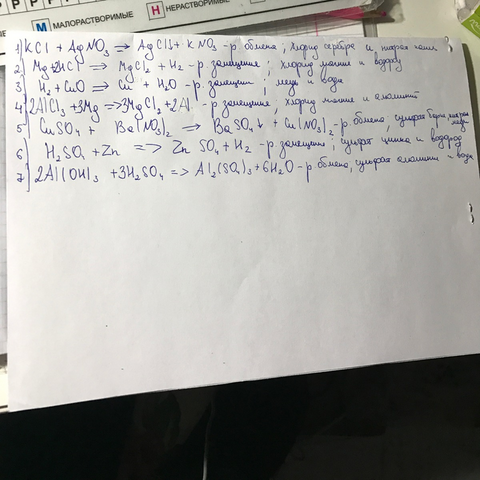 Р Р Р Р
М МАЛОРАСТВОРИМЫЕ Н НЕРАСТВОРИМЫЕ
1) KCl + AgNO₃ → AgCl↓ + KNO₃ - р. обмена; хлорид серебра и нитрат калия
2) Mg+2HCl => MgCl₂ + H₂ - р. замещения; хлорид магния и водород
3) H₂ + CuO => Cu + H₂O - р. замещения; медь и вода
4) 2AlCl₃ + 3Mg => 3MgCl₂ + 2Al - р. замещение, хлорид магния и алюминий
5) CuSO₄ + Ba(NO₃)₂ => BaSO₄↓ + Cu(NO₃)₂ - р. обмена, сульфат бария нитрат меди
6) H₂SO₄ + Zn => ZnSO₄ + H₂ - р. замещения; сульфат цинка и водород
7) 2Al(OH)₃ + 3H₂SO₄ => Al₂(SO₄)₃ + 6H₂O - р. обмена, сульфат алюминия и вода